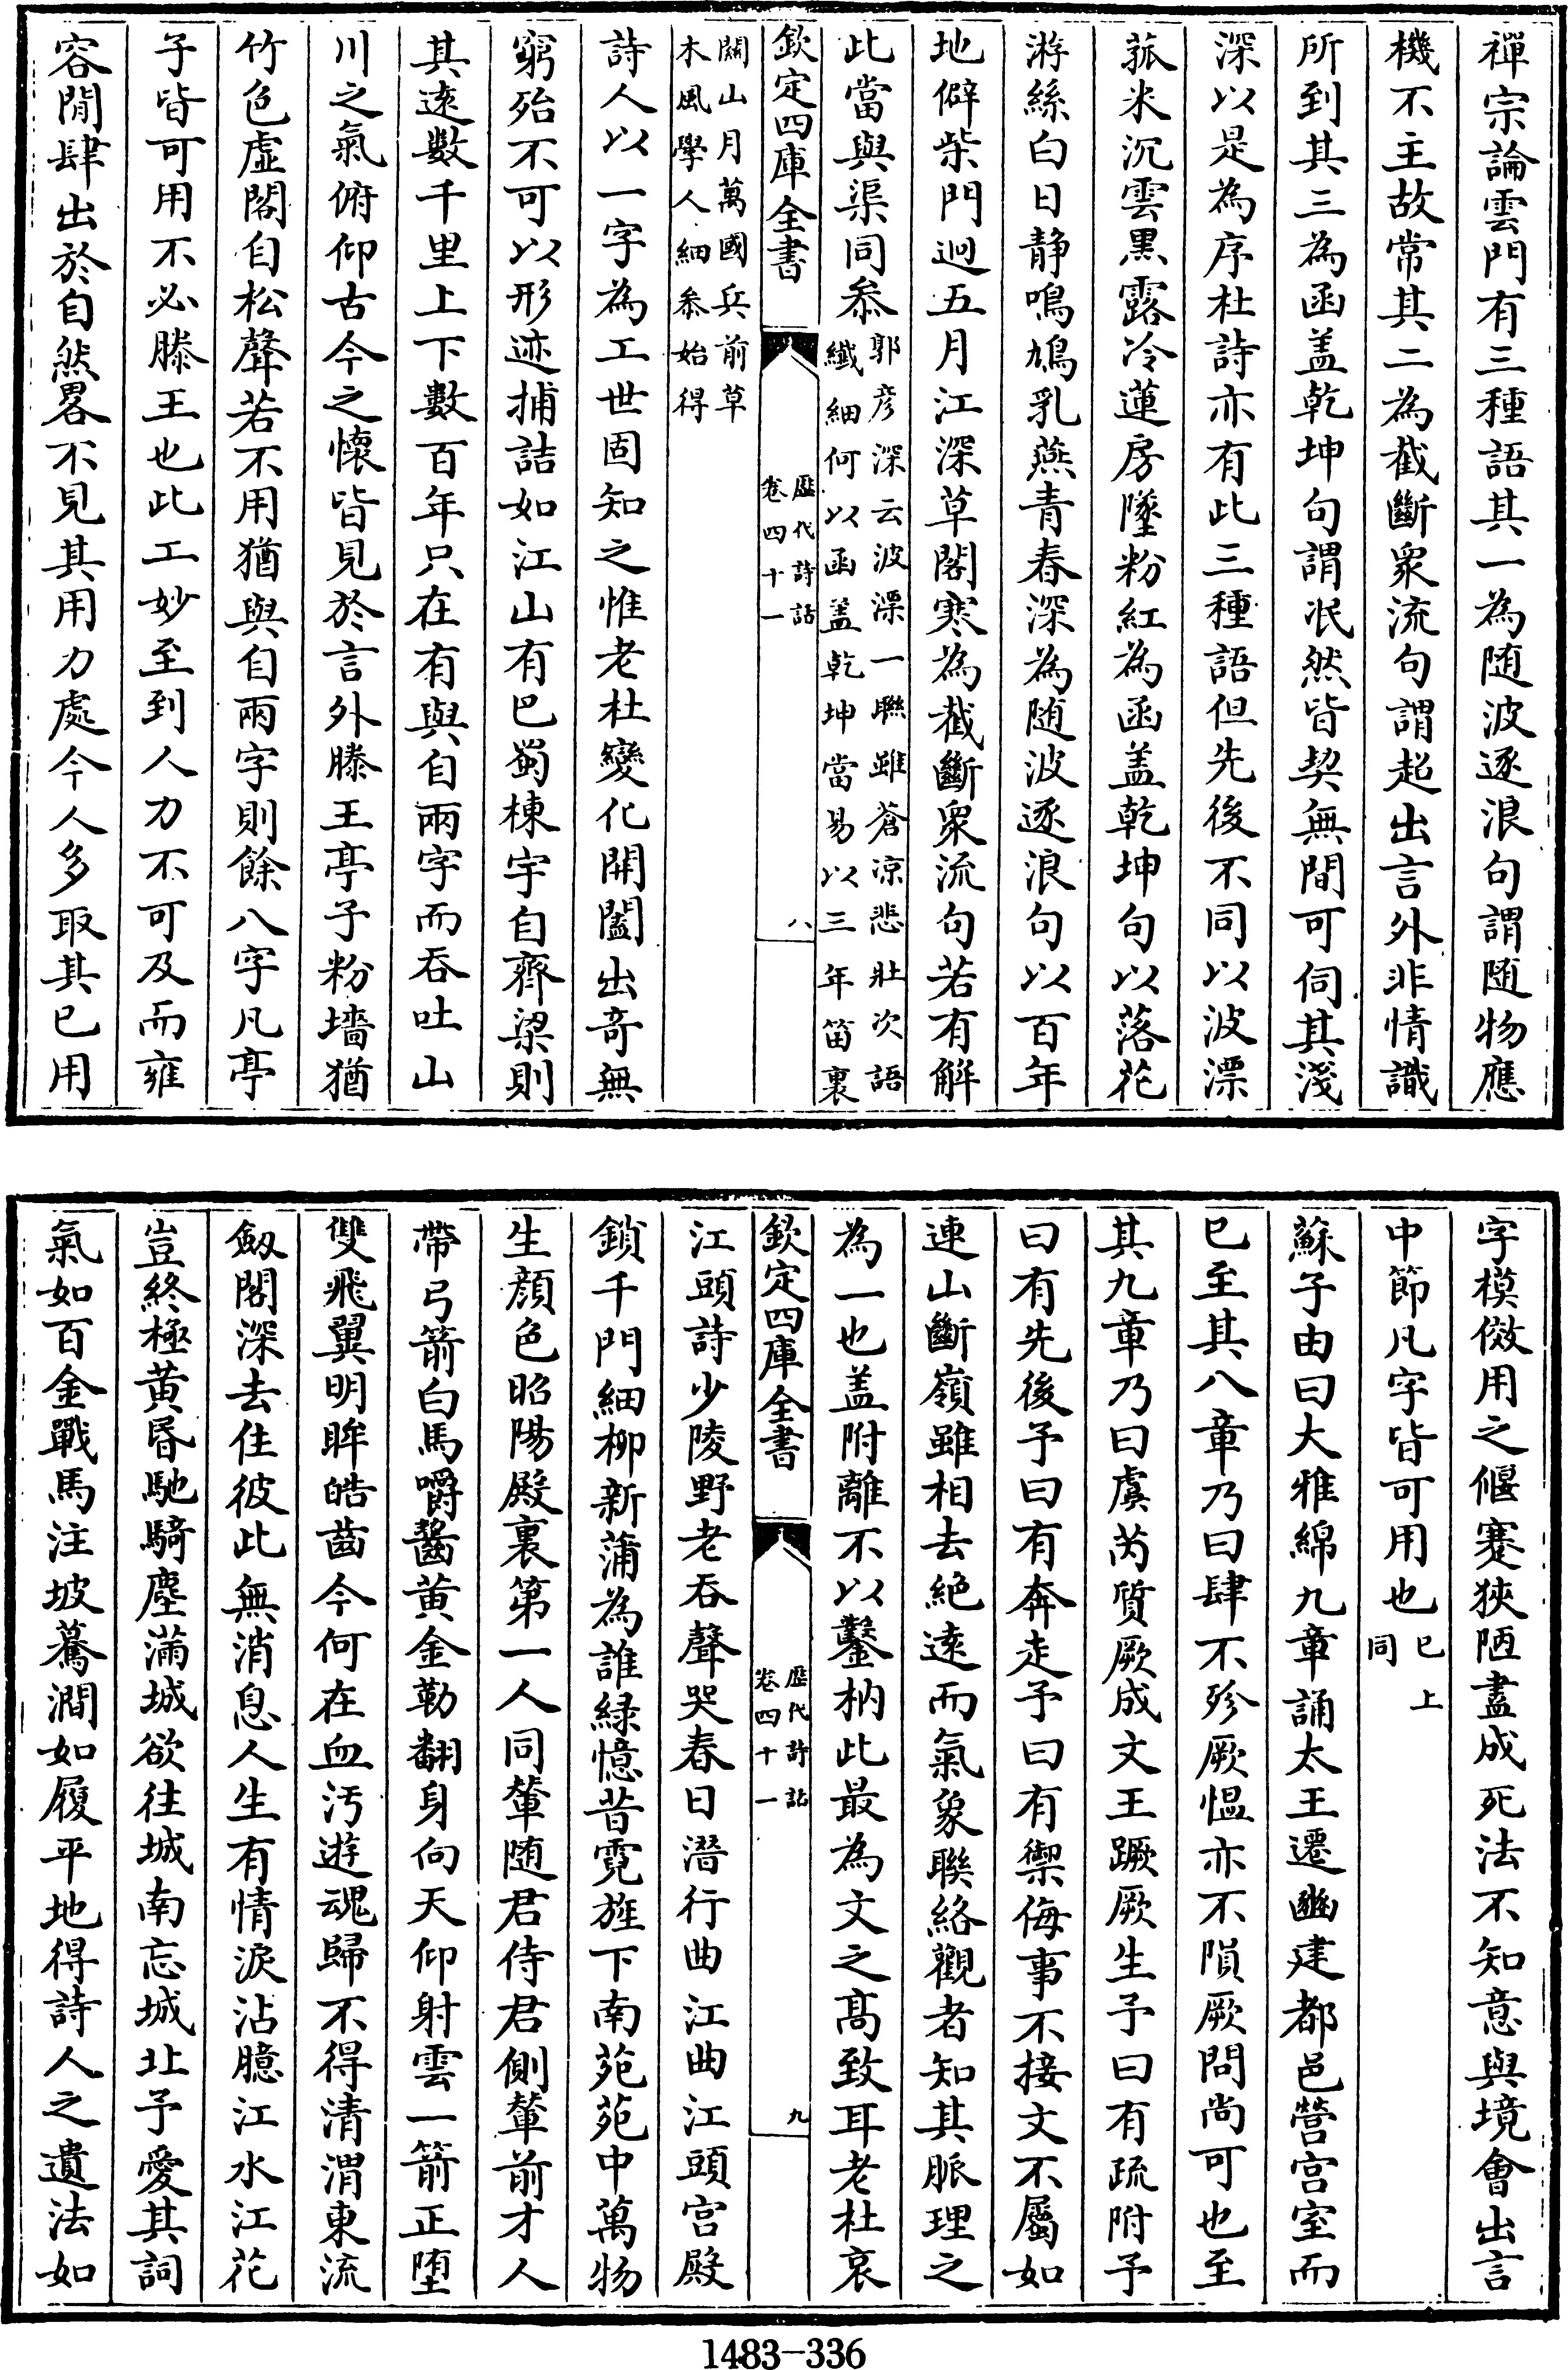 禪宗論雲門有三種語其一為随波逐浪句謂随物應
機不主故常其二為截斷衆流句謂超出言外非情識
所到其三為函盖乾坤句謂泯然皆契無間可伺其淺
深以是為序杜詩亦有此三種語但先後不同以波漂
菰米沉雲黒露冷蓮房墜粉紅為函盖乾坤句以落花
游絲白日静鳴鳩乳燕青春深為随波逐浪句以百年
地僻柴門迥五月江深草閣寒為截斷衆流句若有解
此當與渠同叅郭彦深云波漂一聯雖蒼凉悲壯次語
纎細何以函盖乾坤當易以三年笛裏
欽定四庫全書
歴代詩話
卷四十一
八
關山月萬國兵前草
木風學人細叅始得
詩人以一字為工世固知之惟老杜變化開闔出奇無
窮殆不可以形迹捕詰如江山有巴蜀棟宇自齊梁則
其逺數千里上下數百年只在有與自兩字而吞吐山
川之氣俯仰古今之懐皆見於言外滕王亭子粉墻猶
竹色虚閣自松聲若不用猶與自兩字則餘八字凡亭
子皆可用不必滕王也此工妙至到人力不可及而雍
容閒肆出於自然畧不見其用力處今人多取其已用
字模倣用之偃蹇狹陋盡成死法不知意與境會出言
中節凡字皆可用也已上
同
蘇子由曰大雅綿九章誦太王遷豳建都邑營宫室而
已至其八章乃曰肆不殄厥愠亦不隕厥問尚可也至
其九章乃曰虞芮質厥成文王蹶厥生予曰有疏附予
曰有先後予曰有奔走予曰有禦侮事不接文不屬如
連山斷嶺雖相去絶逺而氣象聯絡觀者知其脈理之
為一也盖附離不以鑿枘此最為文之髙致耳老杜哀
欽定四庫全書
歴代詩話
卷四十一
九
江頭詩少陵野老吞聲哭春日潛行曲江曲江頭宫殿
鎖千門細柳新蒲為誰緑憶昔霓旌下南苑苑中萬物
生顔色昭陽殿裏第一人同輦随君侍君側輦前才人
帶弓箭白馬嚼齧黄金勒翻身向天仰射雲一箭正堕
雙飛翼明眸皓齒今何在血汚遊魂歸不得清渭東流
劔閣深去住彼此無消息人生有情淚沾臆江水江花
豈終極黄昏馳騎塵滿城欲往城南忘城北予愛其詞
氣如百金戰馬注坡驀澗如履平地得詩人之遺法如
1483-336